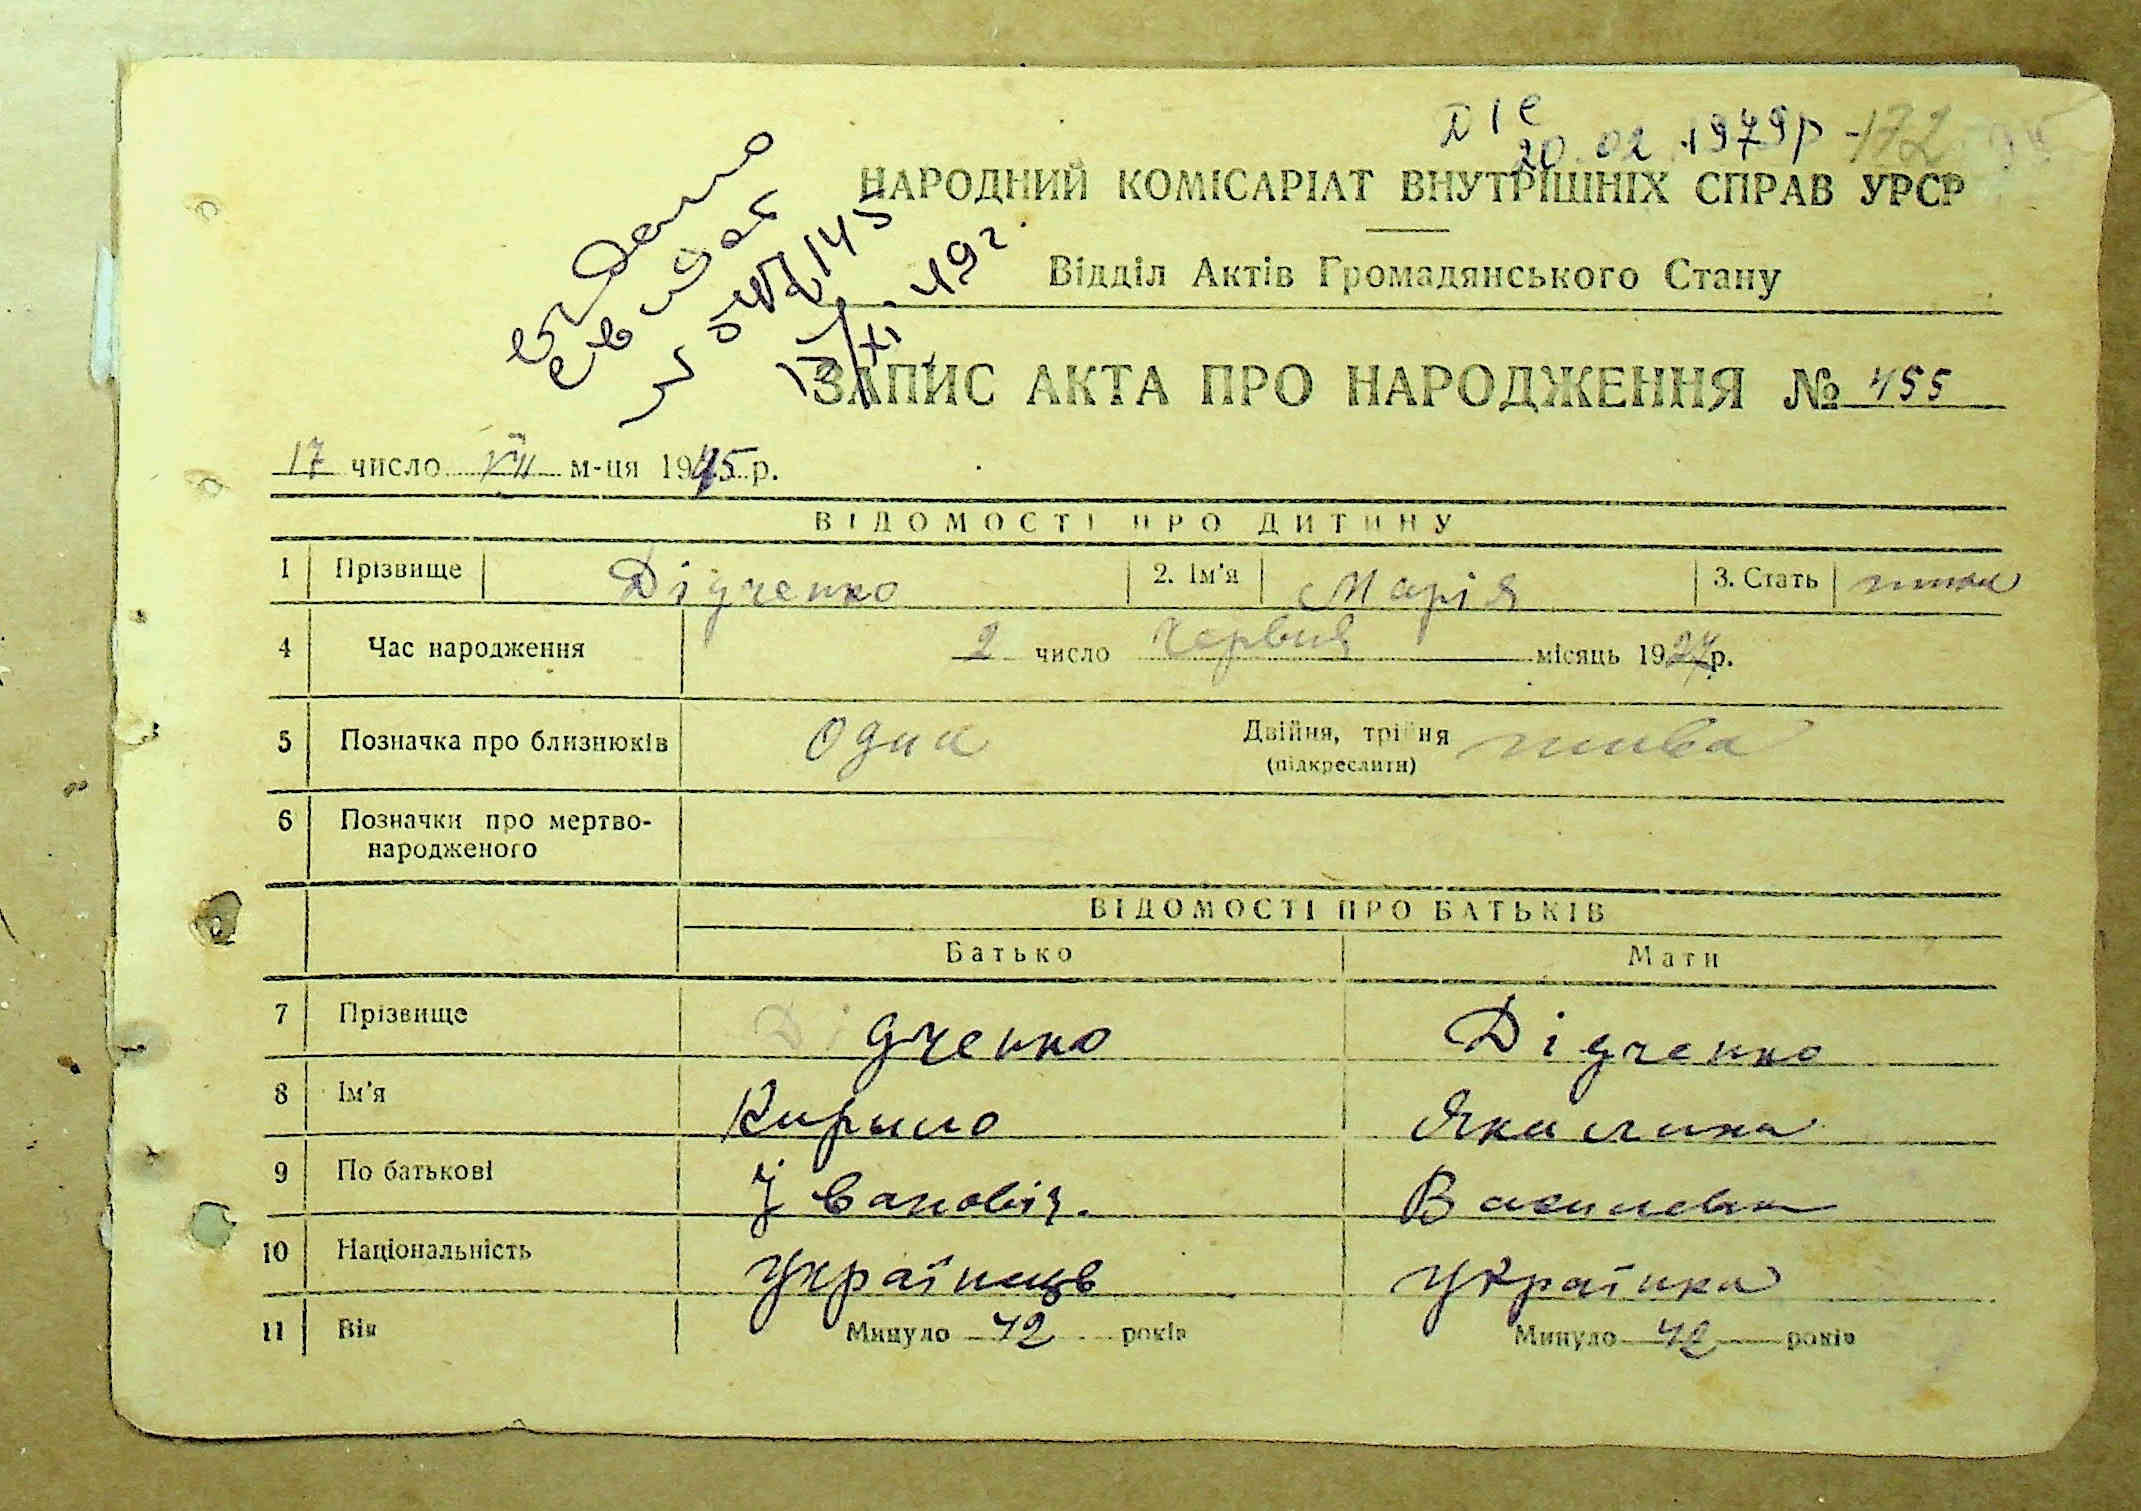 ДІС
20.02.1979р -172
НАРОДНИЙ КОМІСАРІАТ ВНУТРІШНІХ СПРАВ УРСР
Відділ Актів Громадянського Стану
ЗАПИС АКТА ПРО НАРОДЖЕННЯ № 455
17 число VII м-ця 1945 р.
ВІДОМОСТІ ПРО ДИТИНУ
1 Прізвище Дідченко 2. Ім'я Марія 3. Стать
4 Час народження 2 число Червня місяць 1927р.
5 Позначка про близнюків Одна Двійня, трійня
(підкреслити)
6 Позначки про мертво-
народженого
ВІДОМОСТІ ПРО БАТЬКІВ
Батько Мати
7 Прізвище Дідченко Дідченко
8 Ім'я Кирило Якилина
9 По батькові Івановіч. Василевна
10 Національність Українець Українка
11 Вік Минуло 42 років Минуло 42 років